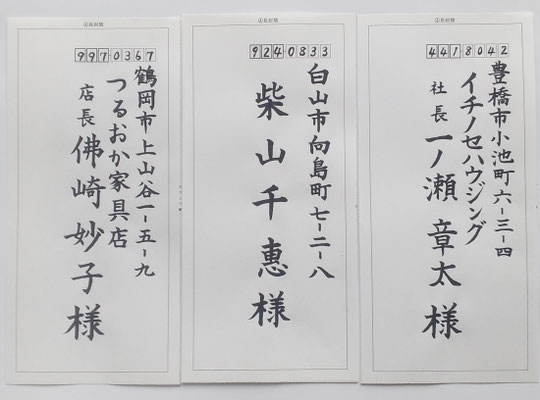 4418042
豊橋市小池町六-三-四
イチノセハウジング
社長 一ノ瀬章太様
9240833
白山市向島町七-二-八
柴山千恵様
9970367
鶴岡市上山谷一-五-九
つるおか家具店
店長 佛崎妙子様